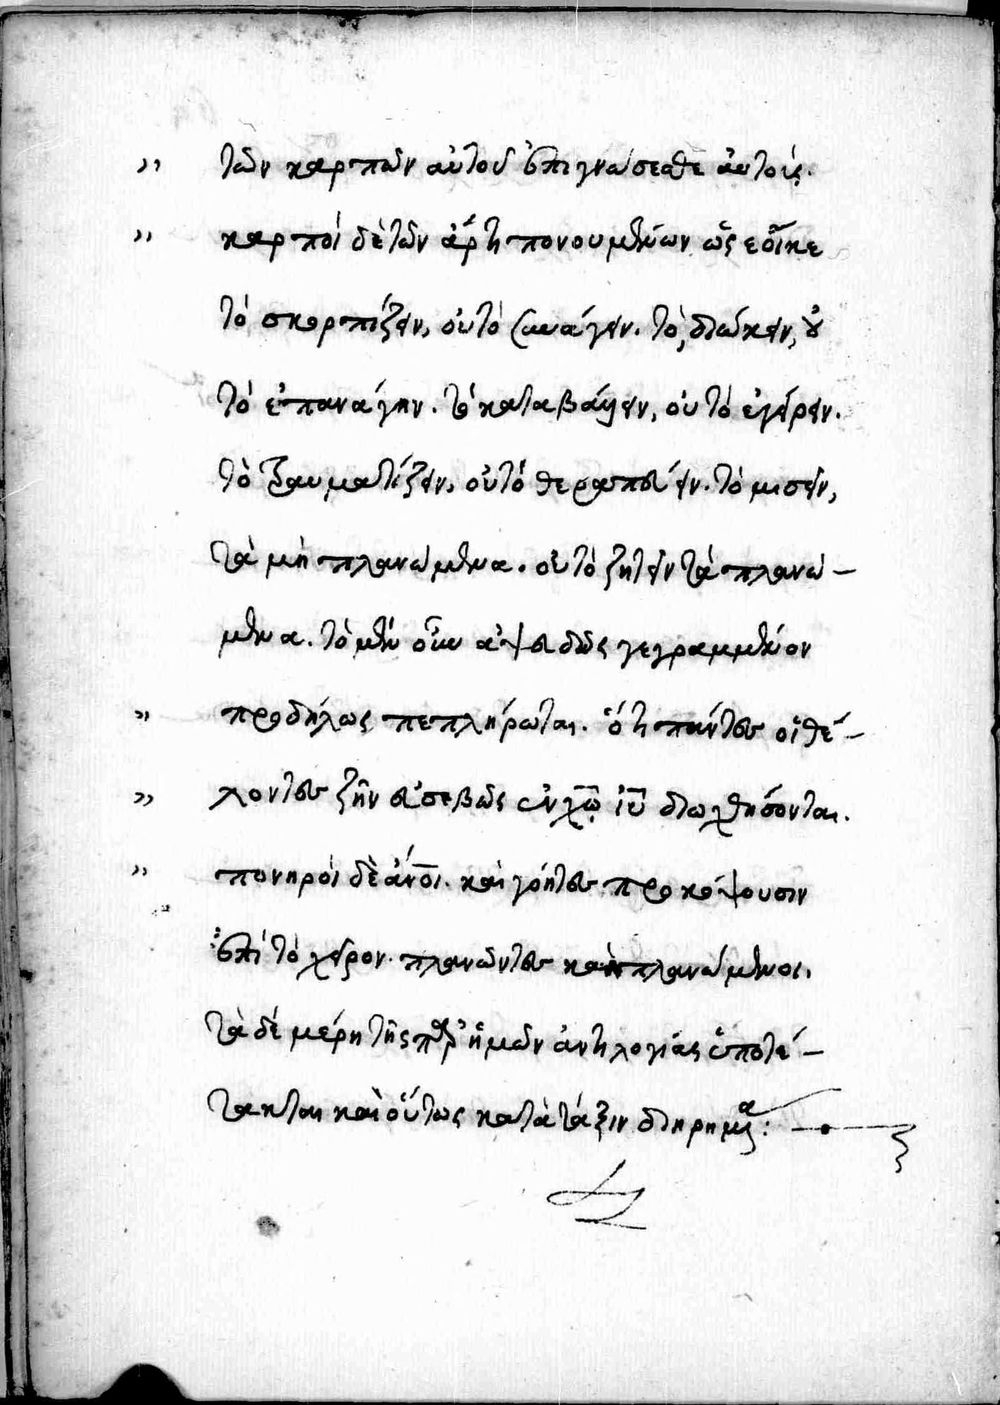 " τῶν καρπῶν αὐτοῦ ἐπιγνώσεσθε αὐτούς.
" καρποὶ δὲ τῶν ἄρτι πονουμένων ὡς ἔοικε
τὸ σκορπίζειν, οὐ τὸ συνάγειν. τὸ διώκειν, οὐ
τὸ ἐπανάγειν. τὸ καταβάλλειν, οὐ τὸ ἐγείρειν.
τὸ τραυματίζειν, οὐ τὸ θεραπεύειν. τὸ μισεῖν,
τὰ μὴ πλανώμενα. οὐ τὸ ζητεῖν τὰ πλανώ–
μενα. τὸ μὲν οὖν ἀψευδῶς γεγραμμένον
" προδήλως πεπλήρωται. ὅτι πάντες οἱ θέ–
" λοντες ζῆν εὐσεβῶς ἐν χῶ ἰῦ διωχθήσονται.
" πονηροὶ δὲ ἄνοι. καὶ γόητες προκόψουσιν
ἐπὶ τὸ χεῖρον. πλανῶντες καὶ πλανώμενοι.
τὰ δὲ μέρη τῆς παρ' ἡμῶν ἀντιλογίας ὑποτέ–
τακται καὶ οὕτως κατὰ τάξιν διηρημένα: